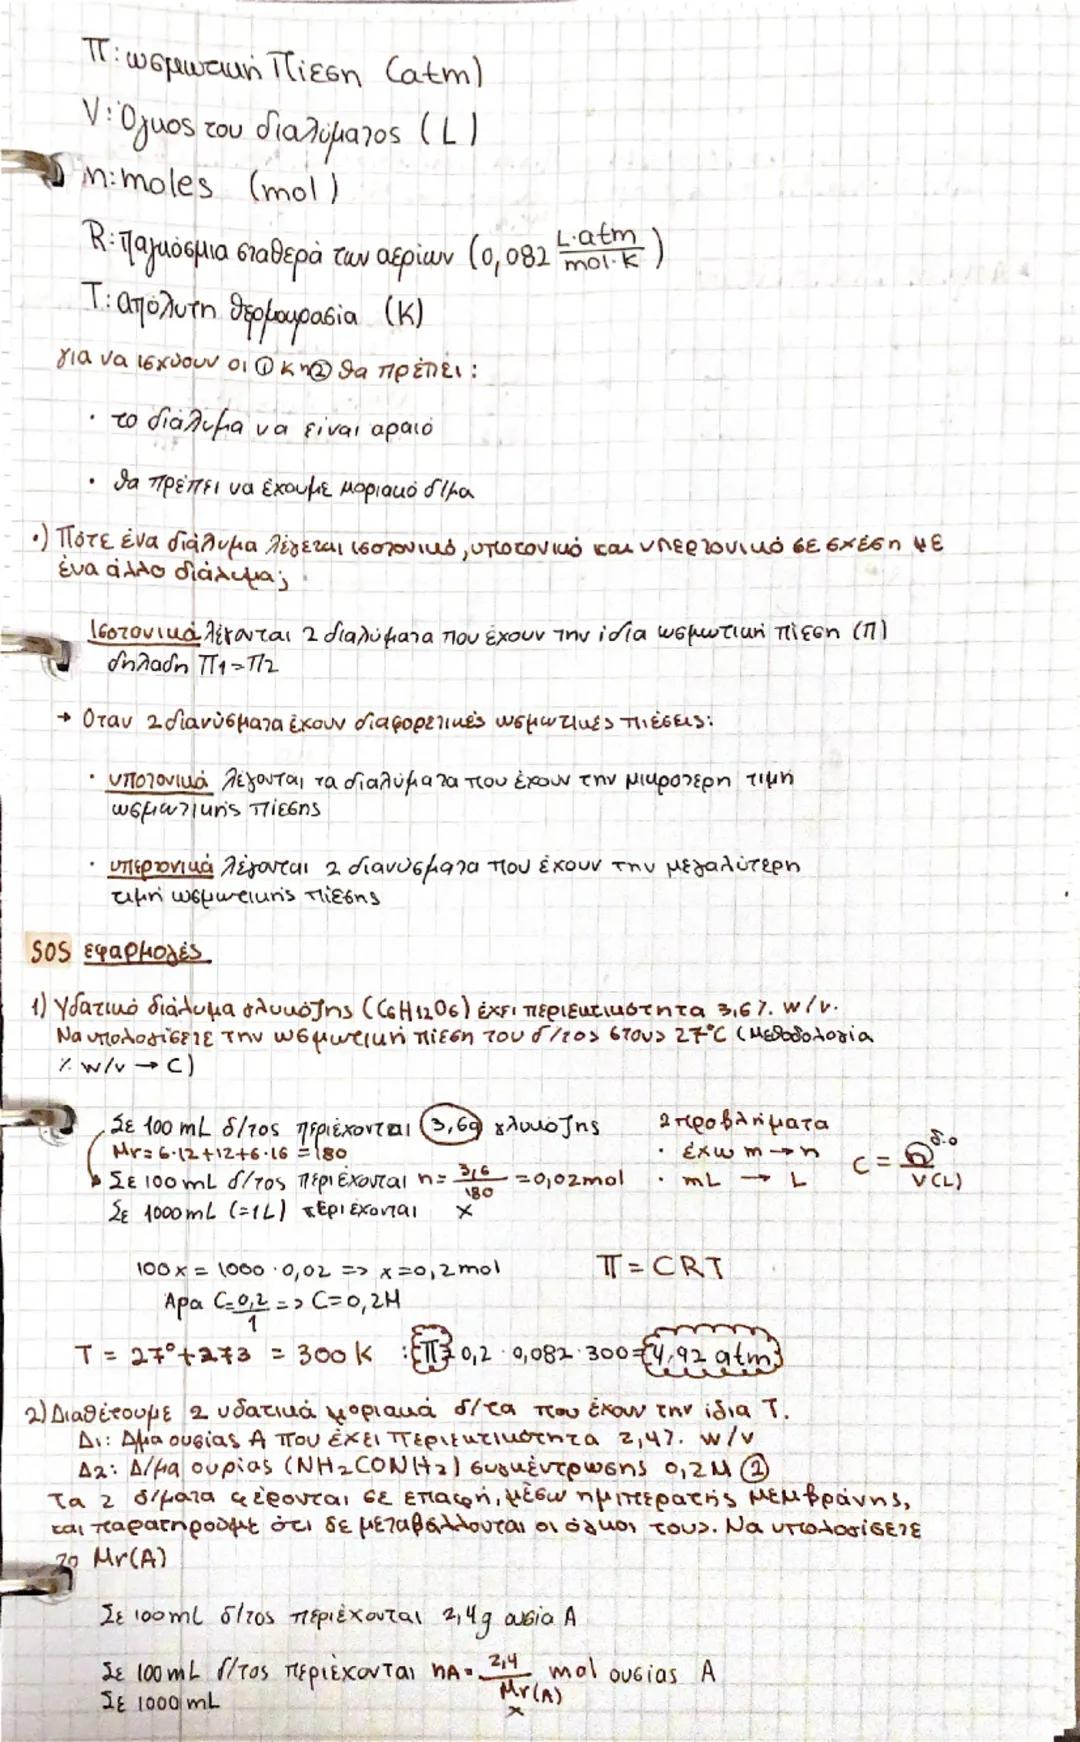 Π: ωσμωτική Πίεση (atm)
V: Όγκος του διαλύματος (L)
n: moles (mol)
R: Παγκόσμια σταθερά των αερίων (0,082 L·atm/mol·K)
T: απόλυτη θερμοκρασία (K)
για να ισχύουν οι ① κ η ② θα πρέπει:
· το διάλυμα να είναι αραιό
· θα πρέπει να έχουμε μοριακό δ/μα
·) Πότε ένα διάλυμα λέγεται ισοτονικό, υποτονικό και υπερτονικό σε σχέση με
ένα άλλο διάλυμα;
Ισοτονικά λέγονται 2 διαλύματα που έχουν την ίδια ωσμωτική πίεση (Π)
δηλαδη Π1=Π2
→ Όταν 2 διανύσματα έχουν διαφορετικές ωσμωτικές πιέσεις:
· υποτονικά λέγονται τα διαλύματα που έχουν την μικρότερη τιμή
ωσμωτικής πίεσης
· υπερτονικά λέγονται 2 διανύσματα που έχουν την μεγαλύτερη
τιμή ωσμωτικής πίεσης
SOS εφαρμογές
1) Υδατικό διάλυμα γλυκόζης (C6H12O6) έχει περιεκτικότητα 3,6% w/v.
Να υπολογίσετε την ωσμωτική πίεση του δ/τος στους 27°C (Μεθοδολογία
% w/v → C)
Σε 100 mL δ/τος περιέχονται 3,6g γλυκόζης
Mr= 6·12+12+6·16 = 180
Σε 100 mL δ/τος περιέχονται n= 3,6/180 =0,02mol
Σε 1000mL (=1L) περιέχονται x
2 προβλήματα
· έχω m → n
· mL → L
C = n δ.ο / V(L)
100x = 1000·0,02 => x=0,2mol
Άρα C=0,2/1 => C=0,2M
Π = CRT
T = 27°+273 = 300 K : Π= 0,2·0,082·300= 4,92 atm
2) Διαθέτουμε 2 υδατικά μοριακά δ/τα που έχουν την ίδια T.
Δ1: Δ/μα ουσίας A που έχει περιεκτικότητα 2,4% w/v
Δ2: Δ/μα ουρίας (NH2CONH2) συγκέντρωσης 0,2 M ②
Τα 2 δ/ματα φέρονται σε επαφή, μέσω ημιπερατής μεμβράνης,
και παρατηρούμε ότι δε μεταβάλλονται οι όγκοι τους. Να υπολογίσετε
το Mr(A)
Σε 100mL δ/τος περιέχονται 2,4g ουσία A
Σε 100 mL δ/τος περιέχονται nA= 2,4/Mr(A) mol ουσίας A
Σε 1000 mL x